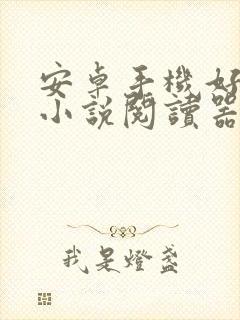 安卓手機好
小說閱讀器
我是燈盞